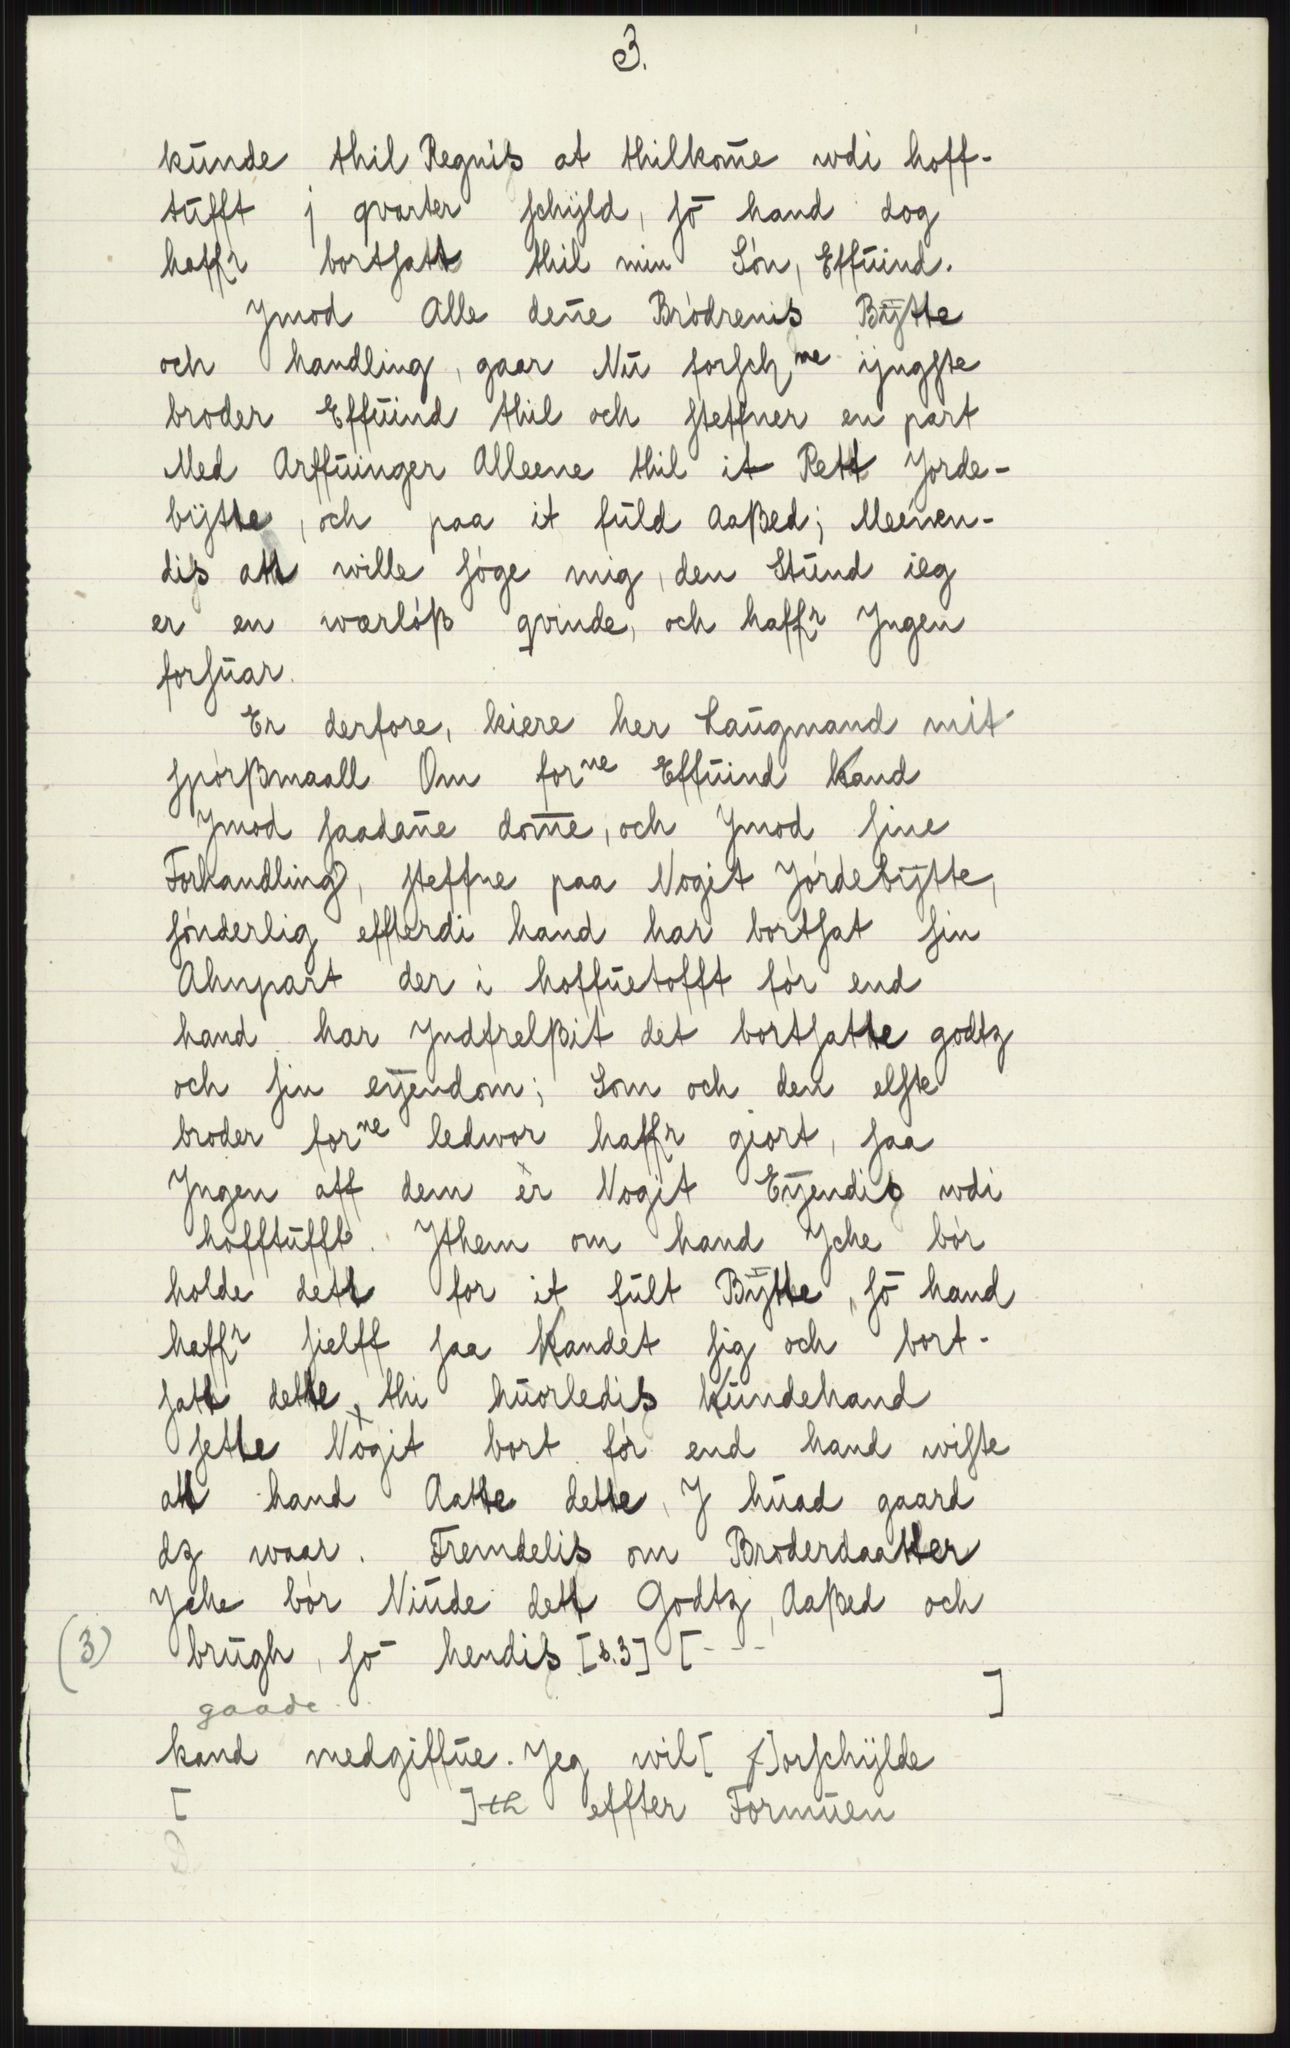 3.
kunde thil Regnis at thilkom̄e wdi hoff-
tufft j qvarter schÿld, so̅ hand dog
haffr bortsatt thil min Són, Effuind.
Ymod Alle den̄e Bródrenis Bÿtte
och handling, gaar Nu forschne ÿngste
broder Effuind thil och steffner en part
Med Arffuinger Alleene thil it Rett Jorde-
bÿtte, och paa it fuld Aaßed; Meenen-
dis att wille sóge mig, den Stund ieg
er en wærlóß qvinde, och haffr Jngen
forsuar.
Er derfore, kiere her Laugmand mit
spórßmaall Om forne Effuind kand
Ymod saadan̄e dom̄e, och Ymod sine
Forhandling, steffne paa Nogit Jórdebÿtte,
sónderlig effterdi hand har bortsat sin
Ahnpart der i hoffuetofft fór end
hand har Jndfrelßit det bortsatte godtz
och sin eÿendom; Som och den elste
broder forne ledwor haffr giort, saa
Jngen aff dem er Nogit Eÿendis wdi
hofftufft. Jthem om hand Jche bór
holde dett for it fult Bÿtte, so̅ hand
haffr sielff saa kandet sig och bort-
satt dette, thi huorledis kundehand
sette Nogit bort fór end hand wiste
att hand Aatte dette, J huad gaard
dz waar. Fremdelis om Broderdaatter
Jche bór Niude dett Godtz, Aaßed och
(3) brugh, so̅ hendis [s.3] [---
gaade ]
kand medgiffue. Jeg wil[ f]orschÿlde
[ ]th effter Formuen